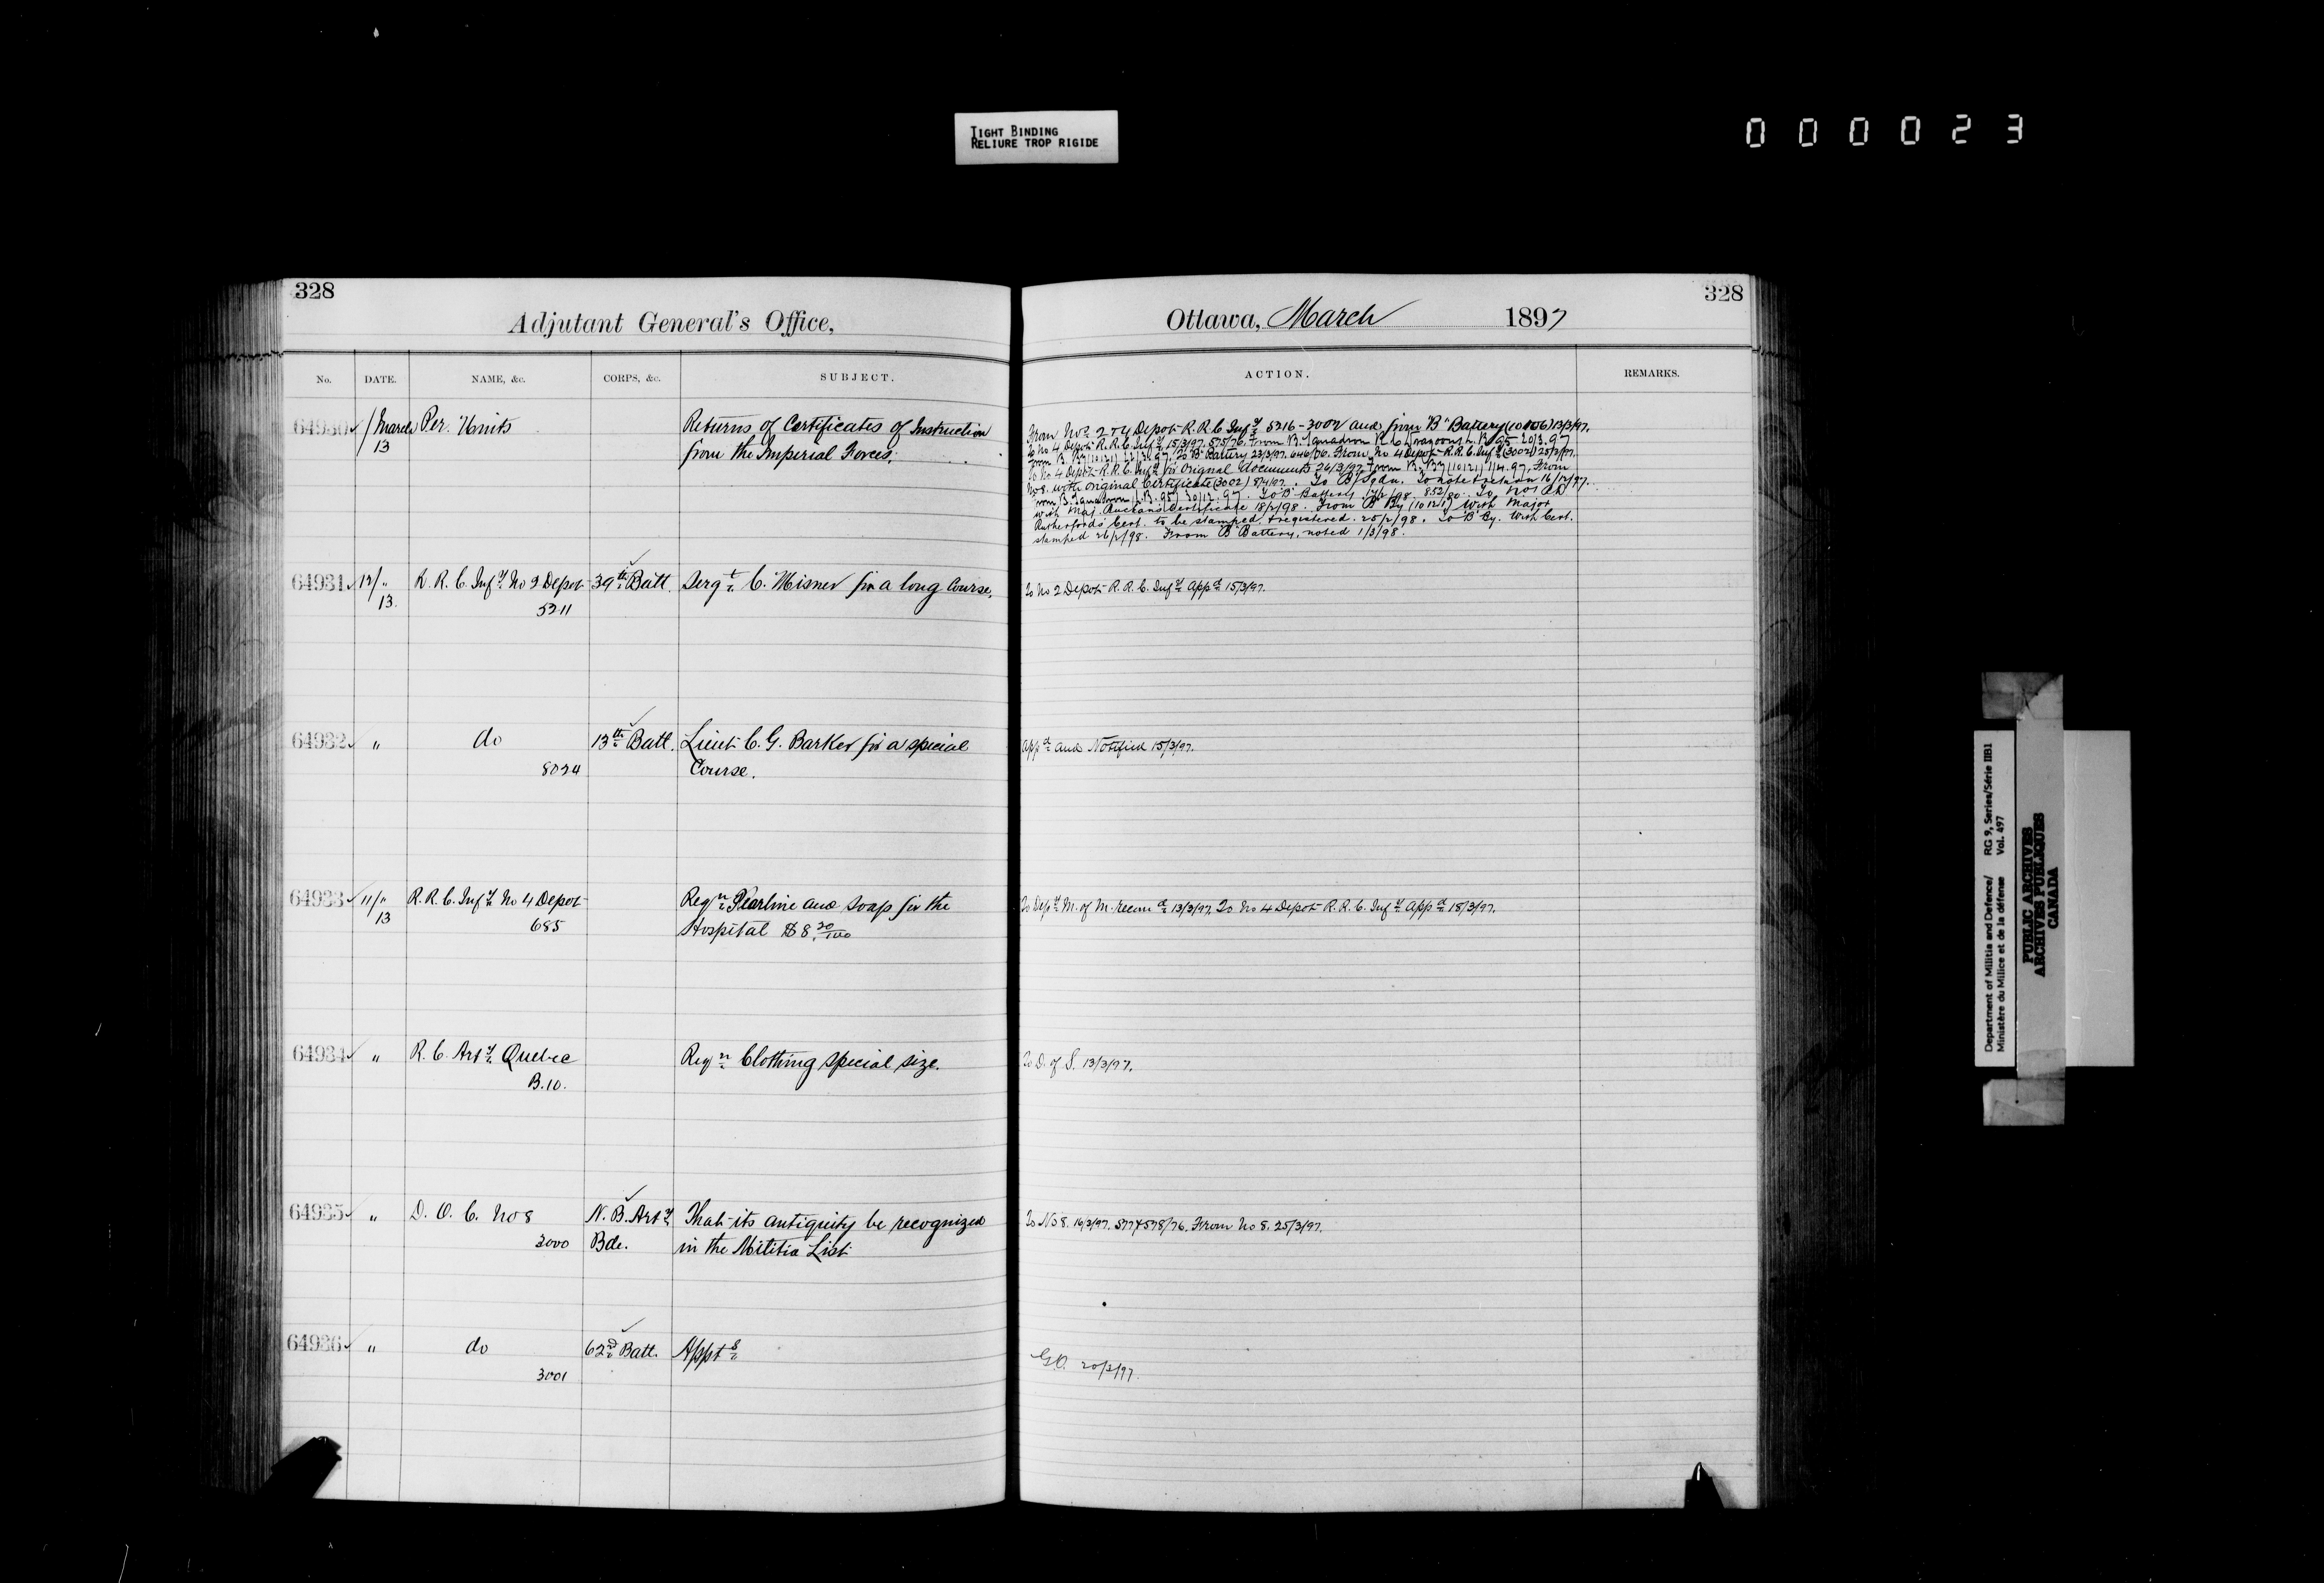 TIGHT BINDING
RELIURE TROP RIGIDE
000023
328
Adjutant General's Office,
No. DATE. NAME, &c. CORPS, &c. SUBJECT.
64930 / March 13 Per. Units Returns of Certificates of Instruction
from the Imperial Forces.
64931 12/" 13. R. R. C. Infy No 2 Depot 39th Batt. Sergt C. Misner for a long Course.
5211
64932 " do 13th Batt. Lieut C. G. Barker for a special
8024 Course.
64933 11/" 13 R. R. C. Infy No 4 Depot Reqn Pearline and soap for the
685 Hospital $8.20/100
64934 " R. C. Arty Quebec Reqn Clothing special size.
B.10.
64935 " D. O. C. No 8 N. B. Arty That its antiquity be recognized
3000 Bde. in the Militia List
64936 " do 62nd Batt. Appts
3001
328
Ottawa, March 1897
ACTION. REMARKS.
From Nos 2 & 4 Depot R. R. C. Infy 5216-3002 and from "B" Battery (10106) 13/3/97.
To No 4 Depot R. R. C. Infy 15/3/97. 575/76. From B. Squadron R. C. Dragoons L. B. 95 20/3.97
From B. By (10121) 22/3.97. To B Battery 23/3/97. 646/76. From No 4 Depot R. R. C. Infy (3002) 25/3/97.
To No 4 Depot R. R. C. Infy for Original documents 26/3/97. From B. By (10121) 1/4.97. From
No 8. with original Certificate (3002) 8/4/97. To B/ Sqdn. To note & return 16/12/97.
From B. Squadron (L. B. 95) 30/12.97. To B Battery 852/80. To No 1
with Maj. Certificate 18/2/98. From B By (10121) With Major
Rutherford's Cert. to be stamped & registered. 25/2/98. To B By. With Cert.
stamped 26/2/98. From B Battery, noted 1/3/98.
To No 2 Depot R. R. C. Infy Appd 15/3/97.
Appd and Notified 15/3/97.
To Depy M. of M. recomd 13/3/97. To No 4 Depot R. R. C. Infy Appd 18/3/97.
To D. of S. 13/3/97.
To No 8. 16/3/97. 577 & 578/76. From No 8. 25/3/97.
G.O. 20/3/97.
Department of Militia and Defence/ RG 9, Series/Série IIB1
Ministère du Milice et de la défense Vol. 497
PUBLIC ARCHIVES
ARCHIVES PUBLIQUES
CANADA